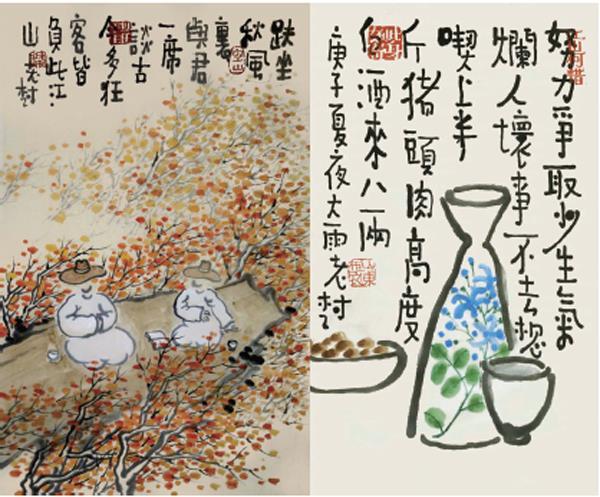 趺坐
秋風
裏
與君
一席
談古
今多狂
客皆
負此江
山老村
努力爭取少生氣
爛人壞事不去想
喫上半
斤豬頭肉高度
白酒來八兩
庚子夏夜大雨老村